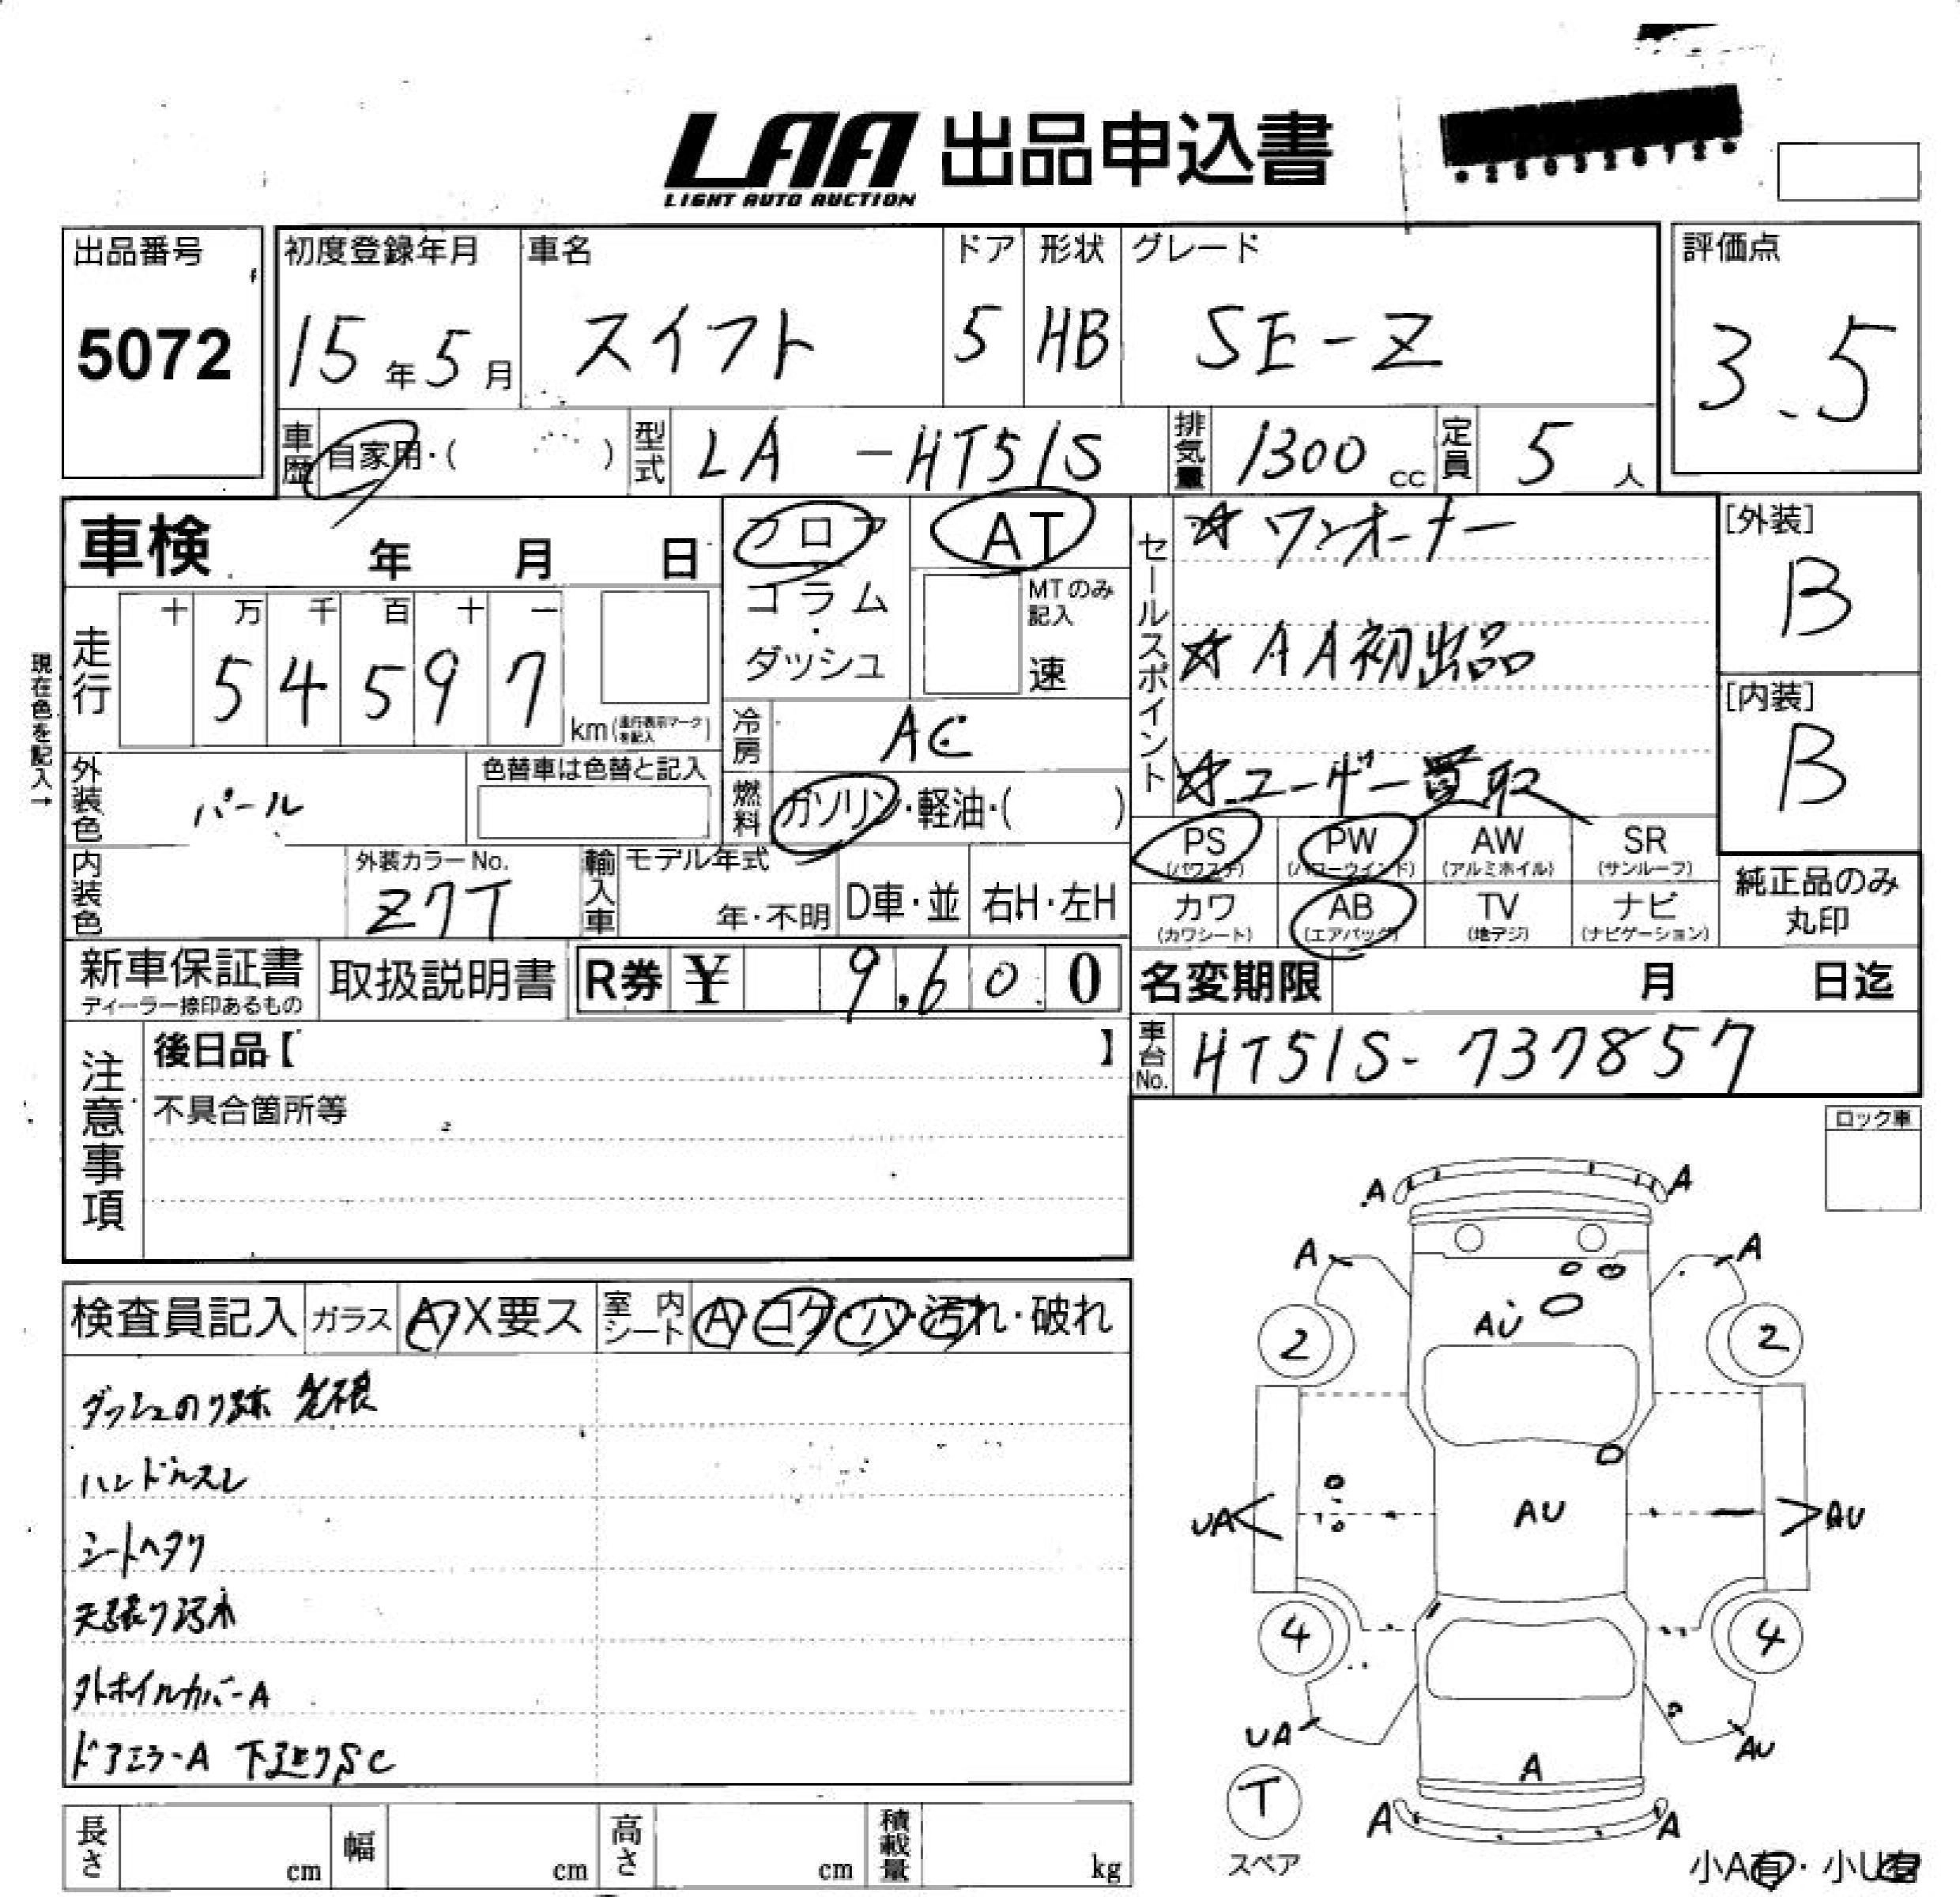 LAA 出品申込書
LIGHT AUTO AUCTION
出品番号
5072
初度登録年月
15年5月
車名
スイフト
ドア
5
形状
HB
グレード
SE-Z
評価点
3.5
車歴
自家用・( )
型式
LA -HT51S
排気量
1300 cc
定員
5 人
車検 年 月 日
走行
十 万 千 百 十 一
5 4 5 9 7
km(走行表示マークを記入)
現在色を記入→
外装色
パール
色替車は色替と記入
内装色
外装カラーNo.
Z7T
フロア
コラム
・
ダッシュ
AT
MTのみ記入
速
冷房
AC
燃料
ガソリン・軽油・( )
輸入車
モデル年式
年・不明
D車・並
右H・左H
セールスポイント
☆ワンオーナー
☆AA初出品
☆ユーザー買取
[外装]
B
[内装]
B
PS (パワステ)
PW (パワーウインド)
AW (アルミホイル)
SR (サンルーフ)
カワ (カワシート)
AB (エアバッグ)
TV (地デジ)
ナビ (ナビゲーション)
純正品のみ
丸印
新車保証書
ディーラー捺印あるもの
取扱説明書
R券 ¥ 9,600
名変期限 月 日迄
車台No.
HT51S-737857
注意事項
後日品【 】
不具合箇所等
ロック車
検査員記入
ガラス
A・X要ス
室内シート
A・コゲ・穴・汚れ・破れ
ダッシュのり跡
ハンドルスレ
シートヘタリ
天張り汚れ
外ホイルカバーA
ドアミラーA 下廻りSC
A A
A A
AU
2 2
UA AU AU
4 4
UA AU
A
A A
T
スペア
小A有・小U有
長さ cm
幅 cm
高さ cm
積載量 kg